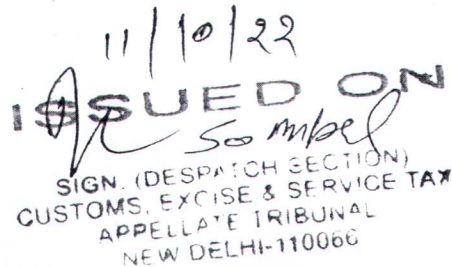 11/10/22
ISSUED ON
SIGN. (DESPATCH SECTION)
CUSTOMS, EXCISE & SERVICE TAX
APPELLATE TRIBUNAL
NEW DELHI-110066